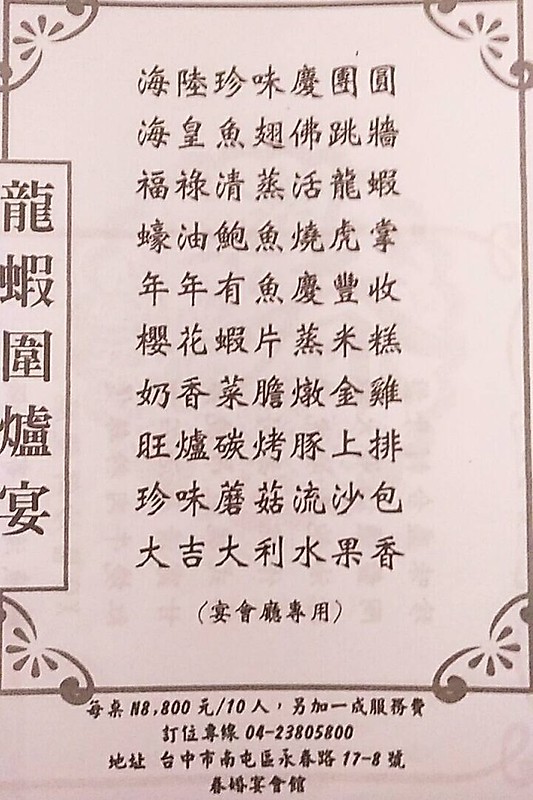 龍蝦圍爐宴
海陸珍味慶團圓
海皇魚翅佛跳牆
福祿清蒸活龍蝦
蠔油鮑魚燒虎掌
年年有魚慶豐收
櫻花蝦片蒸米糕
奶香菜膽燉金雞
旺爐碳烤豚上排
珍味蘑菇流沙包
大吉大利水果香
(宴會廳專用)
每桌N8,800元/10人，另加一成服務費
訂位專線 04-23805800
地址 台中市南屯區永春路17-8號
春婚宴會館